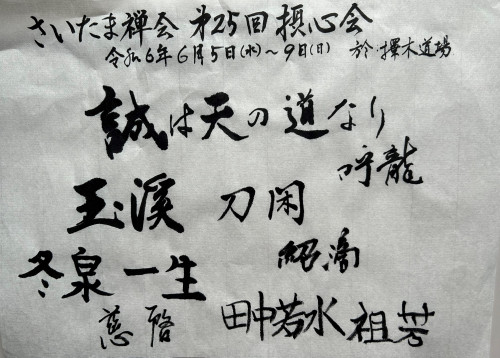 さいたま禅会 第25回摂心会
令和6年6月5日(水)〜9日(日) 於・擇木道場
誠は天の道なり
呼龍
玉溪 刀閑
冬泉 一生 紹滴
慈啓 田中若水 祖芳